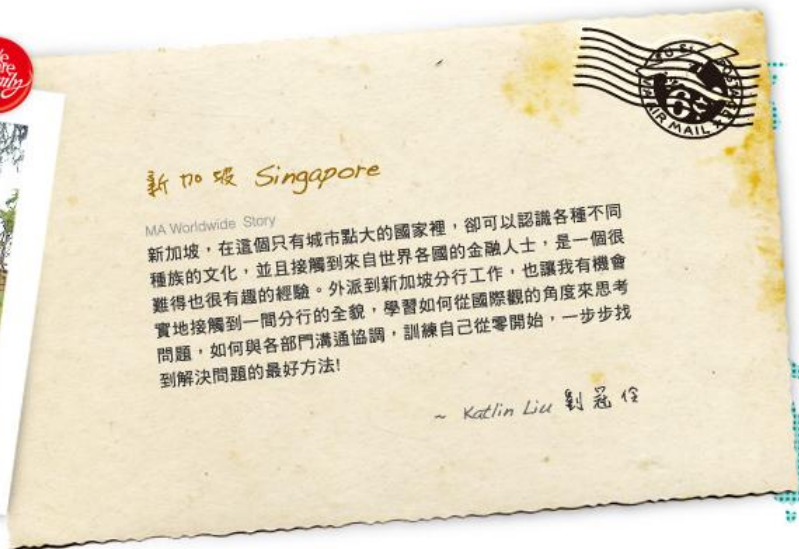 We
are
family
AIR MAIL
新加坡 Singapore
MA Worldwide Story
新加坡，在這個只有城市點大的國家裡，卻可以認識各種不同
種族的文化，並且接觸到來自世界各國的金融人士，是一個很
難得也很有趣的經驗。外派到新加坡分行工作，也讓我有機會
實地接觸到一間分行的全貌，學習如何從國際觀的角度來思考
問題，如何與各部門溝通協調，訓練自己從零開始，一步步找
到解決問題的最好方法!
~ Katlin Liu 劉冠伶